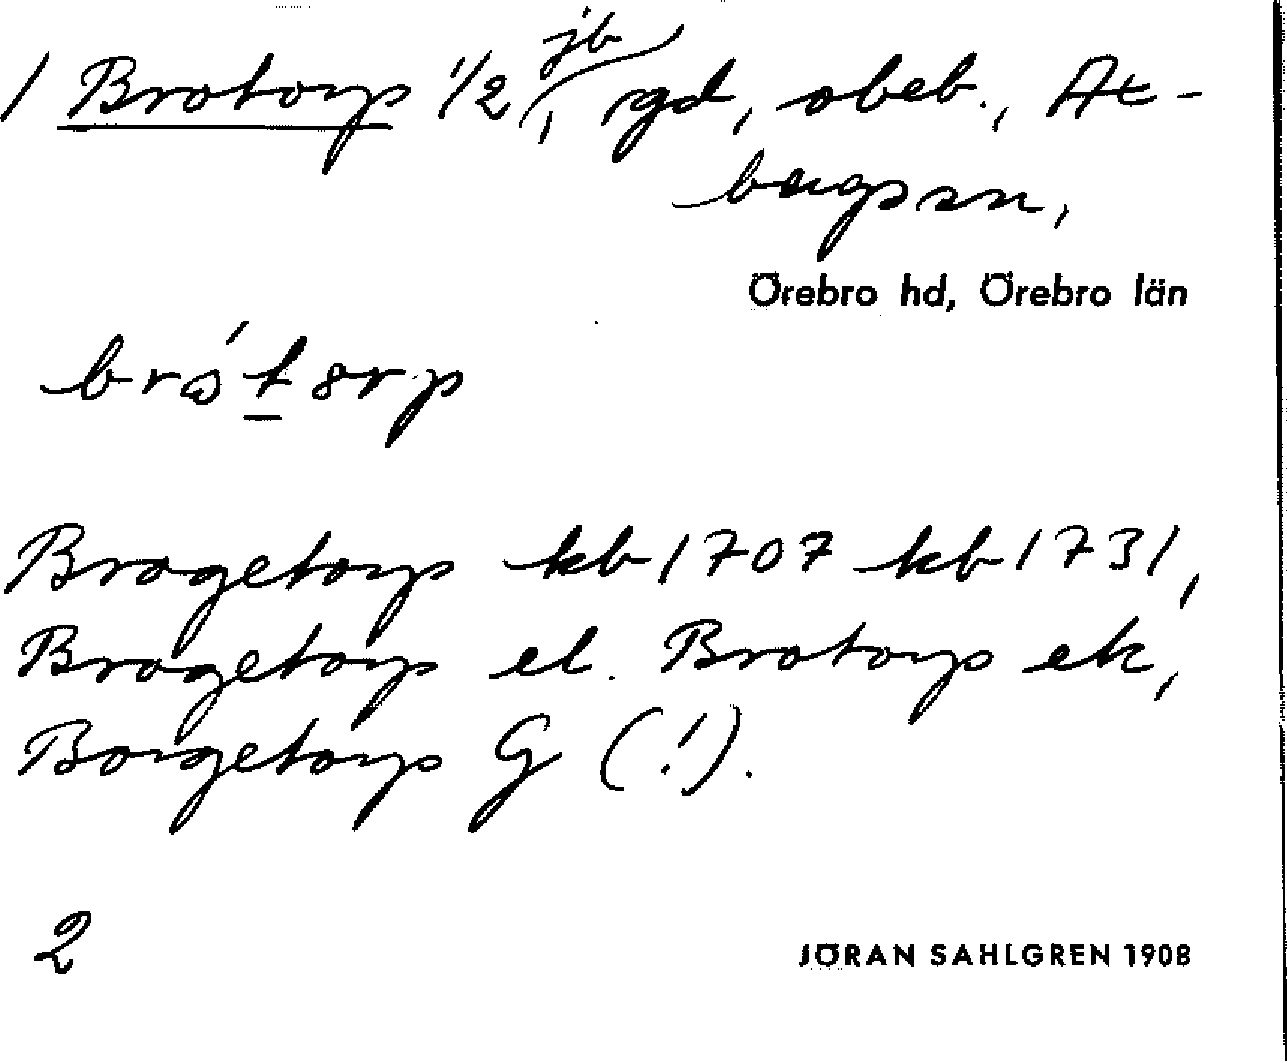 / Brotorp 1/2 jb, gd, obeb., At-
bergs sn,
Örebro hd, Örebro län
bró́torp
Brogetorp kb 1707 kb 1731,
Brogetorp el. Brotorp ek,
Borgetorp G (!).
2
JÖRAN SAHLGREN 1908